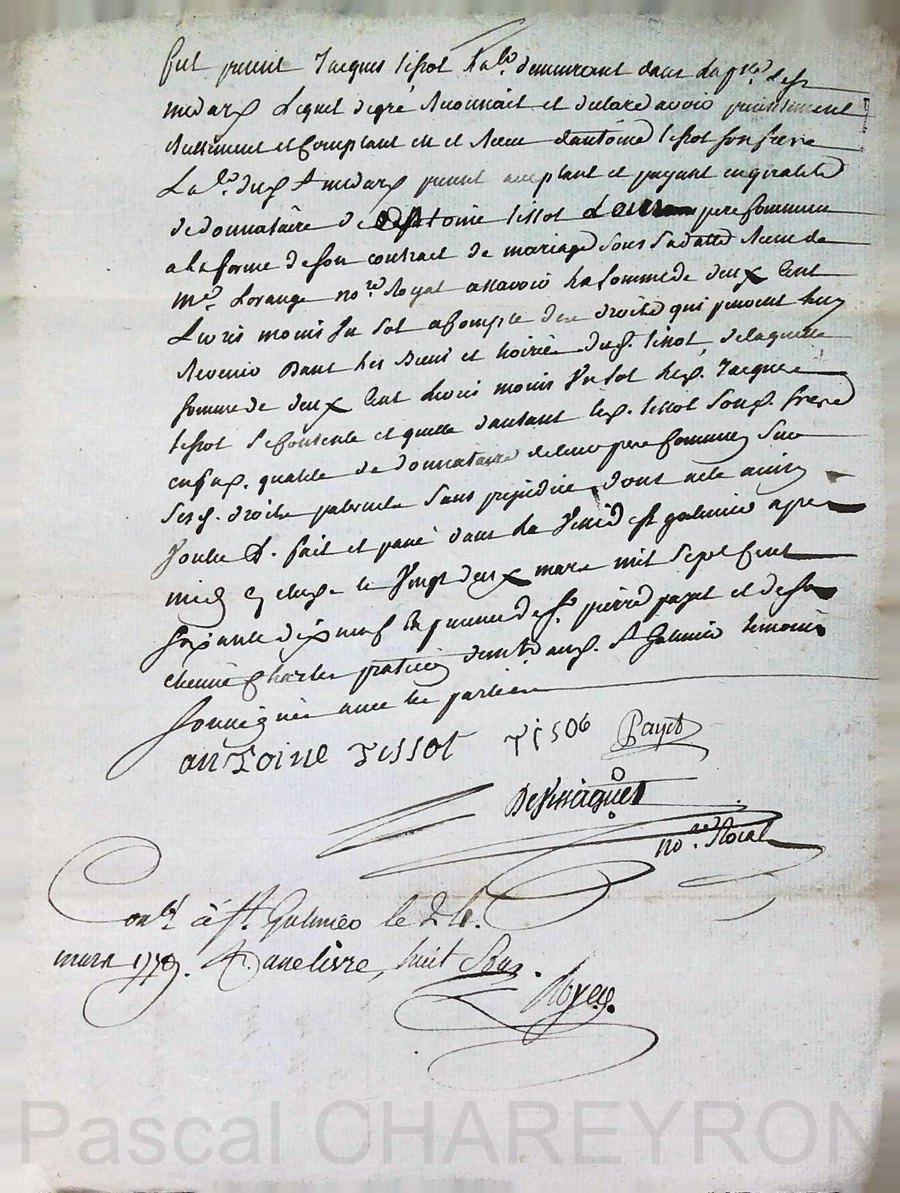 fut present Jacques tissot lab.r demeurant dans la p.sse de st
medard Lequel de gré reconnait et declare avoir presentement
reellement et Comptant eu et Receu d'antoine tissot son frere
Lab.r dud. st medard present acceptant et payant en qualité
de donnataire de antoine tissot Leur pere Commun
a la forme de son contract de mariage sous sa datte Receu de
m.e Lorange no.re Royal assavoir La somme de deux Cent
Livres moins un sol acompte des droits qui peuvent luy
Revenir dans les Biens et hoirie dud. tissot de laquelle
somme de deux Cent Livres moins un sol led. Jacques
tissot se contente et quitte d'autant led. tissot son d. frere
en sa d. qualité de donnataire de leur pere Commun sur
ses d. droits paternels sans prejudice dont acte ainsy
voulu &. fait et passé dans la ville de st galmier apres
midy en etude le vingt deux mars mil sept Cent
soixante dix neuf En presence de s.r pierre payet et de s.r
etienne Charles praticien demt. aud. st Galmier temoins
soussignés avec les parties
anToine Tissot Tisot Payet
no.re Roial
Con.lé à st. Galmier le 24.
mars 1779. R. une livre, huit sous.